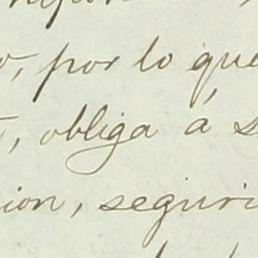 , por lo que
, obliga á s
ion, seguri